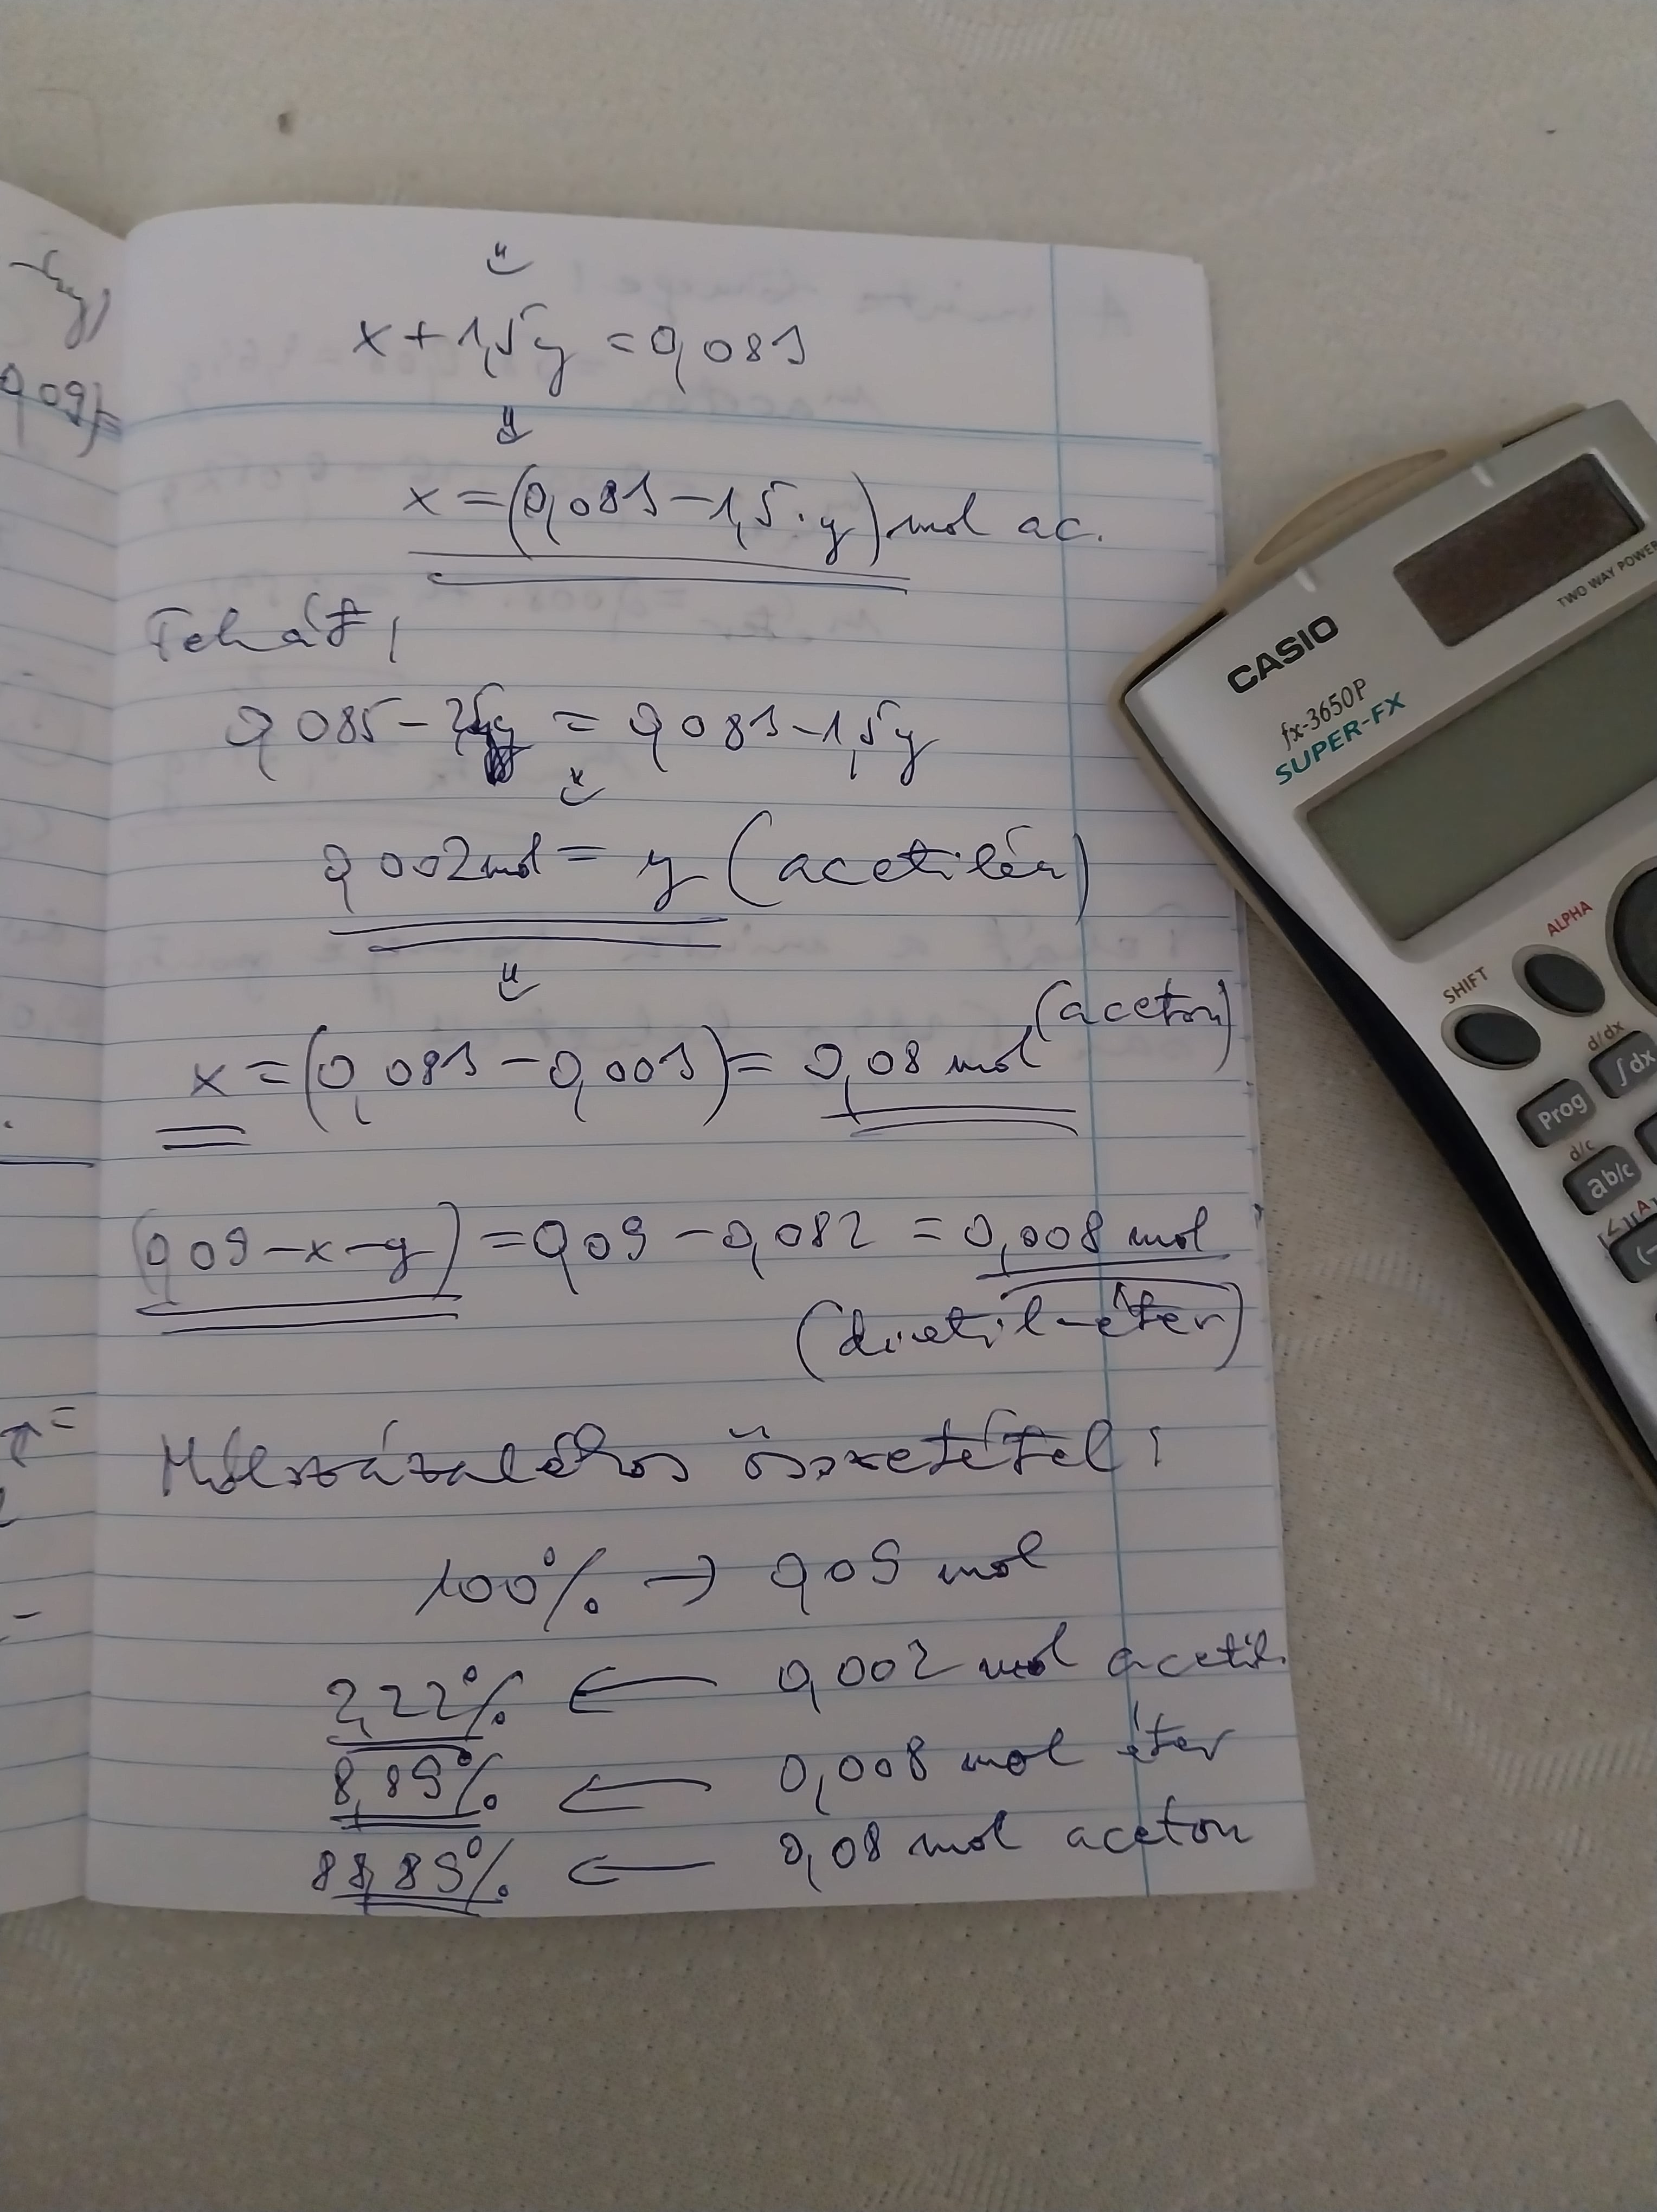 x + 1,5y = 0,083
x = (0,083 - 1,5·y) mol ac.
Tehát,
0,085 - 2,5y = 0,083 - 1,5y
0,002 mol = y (acetilén)
x = (0,083 - 0,003) = 0,08 mol (aceton)
(0,09 - x - y) = 0,09 - 0,082 = 0,008 mol
(dietil-éter)
Mólszázalékos összetétel:
100% → 0,09 mol
2,22% ← 0,002 mol acetil.
8,89% ← 0,008 mol éter
88,89% ← 0,08 mol aceton
0,09)=
CASIO
fx-3650P
SUPER-FX
TWO WAY POWER
SHIFT
ALPHA
d/dx
∫dx
Prog
d/c
ab/c
A
(-)